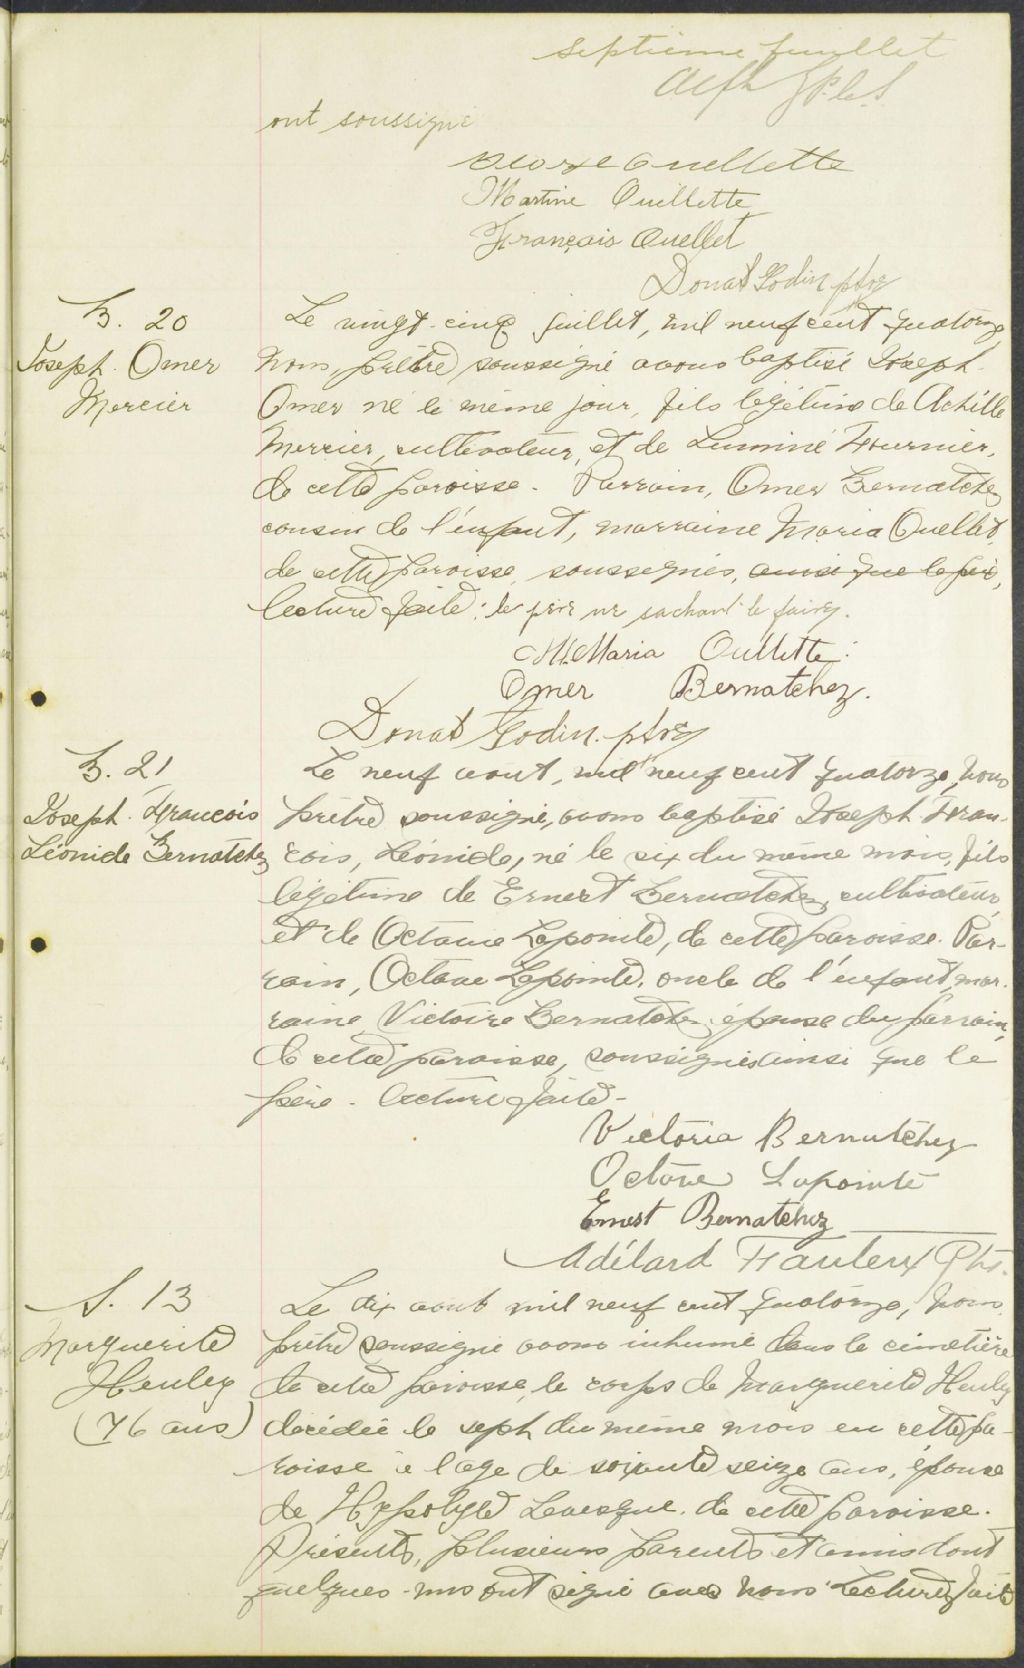 septième feuillet
ont soussigné
George Ouellette
Martine Ouillette
François Ouellet
Donat Godin ptre
B. 20
Joseph. Omer
Mercier
Le vingt-cinq juillet, mil neuf cent quatorze
nous, prêtre soussigné avons baptisé Joseph.
Omer né le même jour, fils légitime de Achille
Mercier, cultivateur, et de Luminé Fournier,
de cette paroisse. Parrain, Omer Bernatchez
cousin de l'enfant, marraine Maria Ouellet,
de cette paroisse, soussignés, ainsi que le père,
lecture faite: le père ne sachant le faire.
M. Maria Ouillette.
Omer Bernatchez.
Donat Godin. ptre
B. 21
Joseph. François
Léonide Bernatchez
Le neuf aout, mil neuf cent quatorze, nous
prêtre soussigné, avons baptisé Joseph Fran-
cois, Léonide, né le six du même mois, fils
légitime de Ernest Bernatchez, cultivateur,
et de Octavie Lapointe, de cette paroisse. Par-
rain, Octave Lapointe, oncle de l'enfant, mar-
raine Victoire Bernatchez, épouse du parrain,
de cette paroisse, soussignés ainsi que le
père. Lecture faite-
Victoria Bernutchez
Octave Lapointe
Ernest Bernatchez
Adélard Fauteux Ptr.
S. 13
Marguerite
Heuley
(76 ans)
Le dix aout mil neuf cent quatorze, nous
prêtre soussigné avons inhumé dans le cimetière
de cette paroisse, le corps de Marguerite Heuley
décédée le sept du même mois en cette pa-
roisse à l'age de soixante seize ans, épouse
de Hyppolyte Levesque. de cette paroisse.
Présents, plusieurs parents et amis dont
quelques-uns ont signé avec nous. Lecture faite